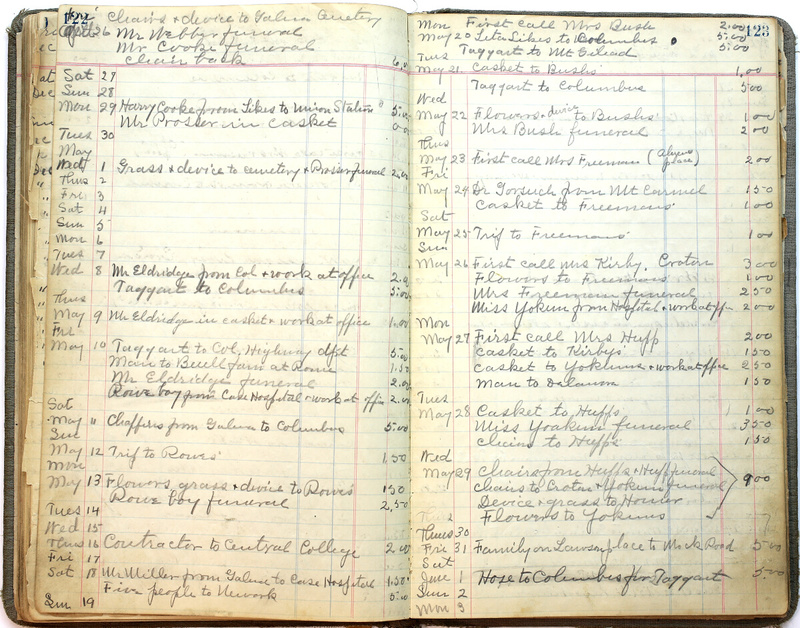 122
Chairs + device to Galena Cemetery
26 Mr Webber funeral
Mr Cooke funeral
Chair back
Sat 27
Sun 28
Mon 29 Harry Cooke from Likes to Union Station 5.00
Mr Prosser in casket
Tues 30
May
Wed 1 Grass + device to cemetery + Prosser funeral 2.00
Thus 2
Fri 3
Sat 4
Sun 5
Mon 6
Tues 7
Wed 8 Mr Eldridge from Col + work at office 2.00
Taggart to Columbus 5.00
Thus
May 9 Mr Eldridge in casket + work at office 1.00
Fri
May 10 Taggart to Col, Highway dpt 5.00
Man to Buell farm at Rome 1.50
Mr Eldridge funeral 2.00
Rowe boy from Case Hospital + work at office 2.00
Sat
May 11 Chaffers from Galena to Columbus 5.00
Sun
May 12 Trip to Rowes' 1.50
Mon
May 13 Flowers, grass + device to Rowes' 1.50
Rowe boy funeral 2.50
Tues 14
Wed 15
Thus 16 Contractor to Central College 2.00
Fri 17
Sat 18 Mr Miller from Galena to Case Hospital 1.50
Five people to Newark 5.00
Sun 19
123
Mon First call Mrs Bush 2.00
May 20 Leta Likes to Columbus 5.00
Tues Taggart to Mt Gilead 5.00
May 21 Casket to Bushs' 1.00
Taggart to Columbus 5.00
Wed
May 22 Flowers + device to Bushs' 1.00
Mrs Bush funeral 2.00
Thus
May 23 First call Mrs Freeman (place) 2.00
Fri
May 24 Dr Gorsuch from Mt Carmel 1.50
Casket to Freemans' 1.00
Sat
May 25 Trip to Freemans' 1.00
Sun
May 26 First call Mrs Kirby, Croton 3.00
Flowers to Freemans' 1.00
Mrs Freeman funeral 2.50
Miss Yokum from Hospital + work at off 2.00
Mon
May 27 First call Mrs Hupp 2.00
Casket to Kirbys' 1.50
Casket to Yokums + work at office 2.50
Man to Delaware 1.50
Tues
May 28 Casket to Hupps 1.00
Miss Yoakum funeral 3.50
Chairs to Hupps' 1.50
Wed
May 29 Chairs from Hupps + Hupp funeral
Chairs to Croton + Yokum funeral 9.00
Device + grass to Homer
Flowers to Yokums
Thus 30
Fri 31 Family on Lawson place to Mock Road 5.00
Sat
June 1 Hose to Columbus for Taggart 5.00
Sun 2
Mon 3